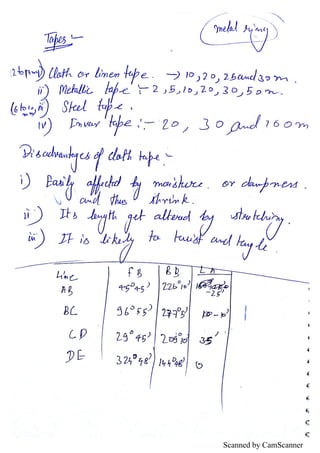 metal rings
Tapes :-
i) Cloth or linen tape. → 10, 20, 25 and 30 m.
ii) Metallic tape :- 2, 5, 10, 20, 30, 50 m.
iii) Steel tape.
iv) Invar tape :- 20, 30 and 100 m
Disadvantages of cloth tape :-
i) Easily affected by moisture or dampness.
and thus shrink.
ii) Its length get altered by stretching.
iii) It is likely to twist and tangle.
Line FB BB LA
AB 45°45' 226°10' -25'
BC 96°55' 277°5' -10'
CD 29°45' 209°10' 35'
DE 324°48' 144°48' 0
Scanned by CamScanner